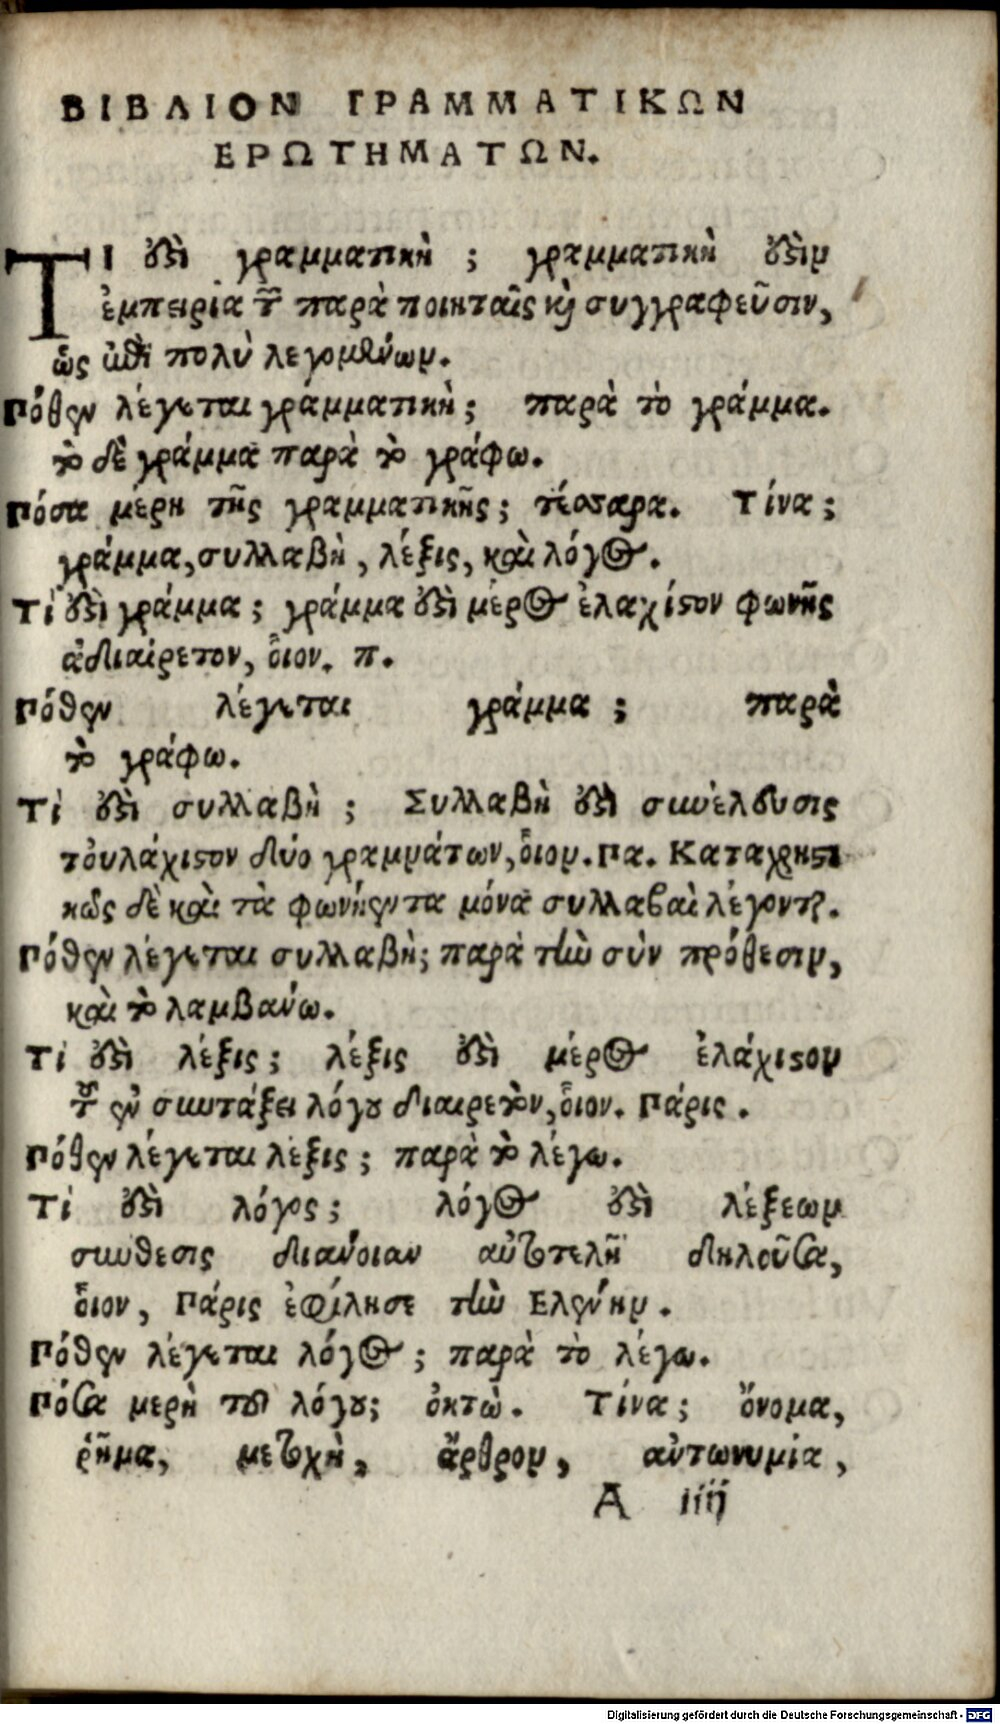 ΒΙΒΛΙΟΝ ΓΡΑΜΜΑΤΙΚΩΝ
ΕΡΩΤΗΜΑΤΩΝ.
ΤΙ ἐϛὶ γραμματικὴ ; γραμματικὴ ἐϛὶν
ἐμπειρία τῶν παρὰ ποιηταῖς κὶ συγγραφεῦσιν,
ὡς ἐπὶ πολὺ λεγομένων.
Πόθεν λέγεται γραμματικὴ; παρὰ τὸ γράμμα.
τὸ δὲ γράμμα παρὰ τὸ γράφω.
Πόσα μέρη τῆς γραμματικῆς; τέσσαρα. Τίνα;
γράμμα, συλλαβὴ, λέξις, καὶ λόγος.
Τί ἐϛὶ γράμμα; γράμμα ἐϛὶ μέρος ἐλαχίϛον φωνῆς
ἀδιαίρετον, οἷον. π.
Πόθεν λέγεται γράμμα ; παρὰ
τὸ γράφω.
Τί ἐϛὶ συλλαβὴ ; Συλλαβὴ ἐϛὶ συνέλευσις
τοὐλάχιϛον δύο γραμμάτων, οἷον. Πα. Καταχρηϛι
κῶς δὲ καὶ τὰ φωνήεντα μόνα συλλαβαὶ λέγονται.
Πόθεν λέγεται συλλαβὴ; παρὰ τὴν σὺν πρόθεσιν,
καὶ τὸ λαμβανώ.
Τί ἐϛὶ λέξις; λέξις ἐϛὶ μέρος ἐλάχιϛον
τοῦ ἐν συντάξει λόγου διαιρετὸν, οἷον. Πάρις .
Πόθεν λέγεται λέξις ; παρὰ τὸ λέγω.
Τί ἐϛὶ λόγος; λόγος ἐϛὶ λέξεων
συνθεσις διάνοιαν αὐτοτελῆ δηλοῦσα,
οἷον, Πάρις ἐφίλησε τὴν Ελένην .
Πόθεν λέγεται λόγος ; παρὰ τὸ λέγω.
Πόσα μερὴ τοῦ λόγου; ὀκτὼ. Τίνα; ὄνομα,
ῥῆμα, μετοχὴ, ἄρθρον, αὐτωνυμία,
A iiij
Digitalisierung gefördert durch die Deutsche Forschungsgemeinschaft - DFG